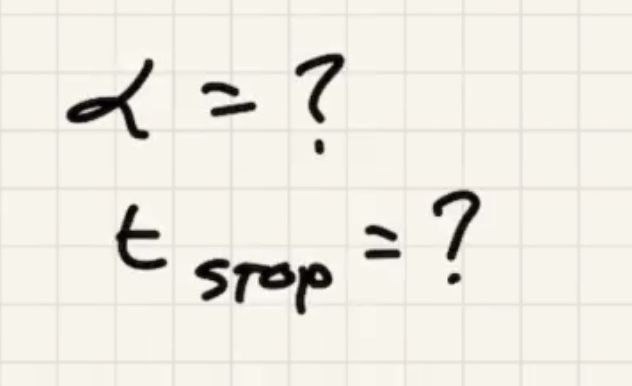 α = ?
t stop = ?